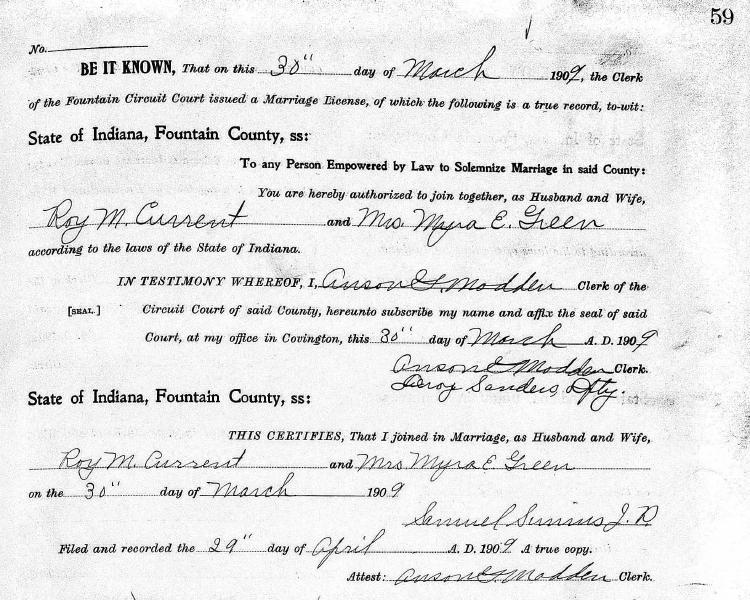 59
No.
BE IT KNOWN, That on this 30" day of March 1909, the Clerk
of the Fountain Circuit Court issued a Marriage License, of which the following is a true record, to-wit:
State of Indiana, Fountain County, ss:
To any Person Empowered by Law to Solemnize Marriage in said County:
You are hereby authorized to join together, as Husband and Wife,
Roy M. Current and Mrs. Myra E. Green
according to the laws of the State of Indiana.
IN TESTIMONY WHEREOF, I, Anson G. Madden Clerk of the
[SEAL.] Circuit Court of said County, hereunto subscribe my name and affix the seal of said
Court, at my office in Covington, this 30" day of March A. D. 1909
Anson G Madden Clerk.
Leroy Sanders, Dpty.
State of Indiana, Fountain County, ss:
THIS CERTIFIES, That I joined in Marriage, as Husband and Wife,
Roy M. Current and Mrs Myra E Green
on the 30" day of March 1909
Samuel J. P.
Filed and recorded the 29" day of April A. D. 1909. A true copy.
Attest: Anson G. Madden Clerk.